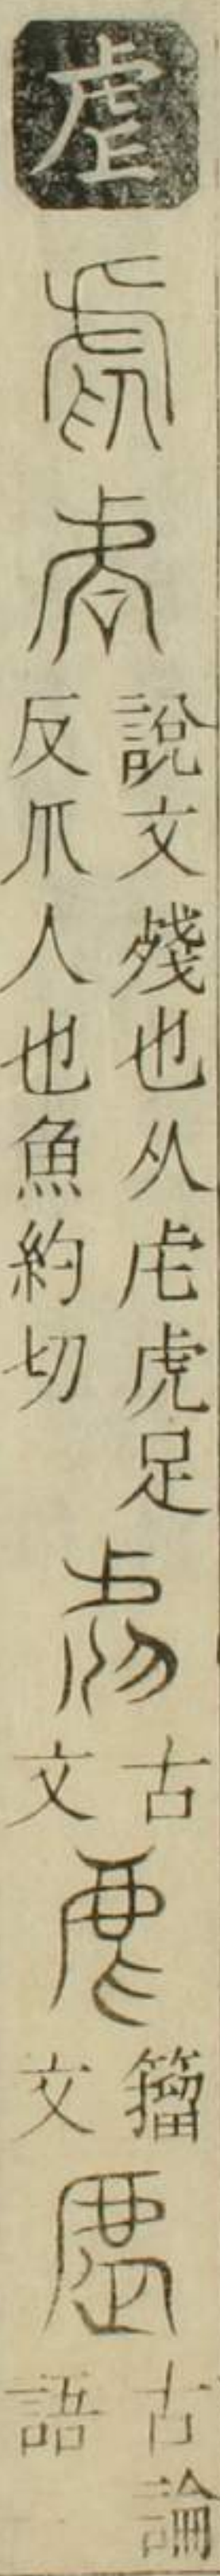 虐
說文殘也从虍虎足
反爪人也魚約切
古文
籀文
古論語